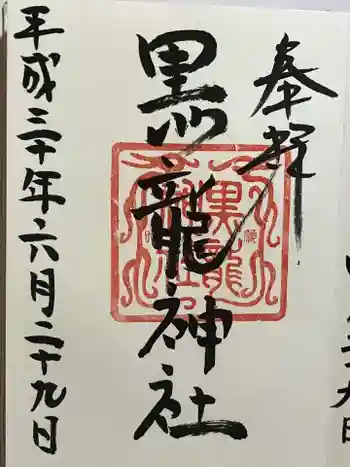 奉拝
黒龍神社
平成三十年六月二十九日